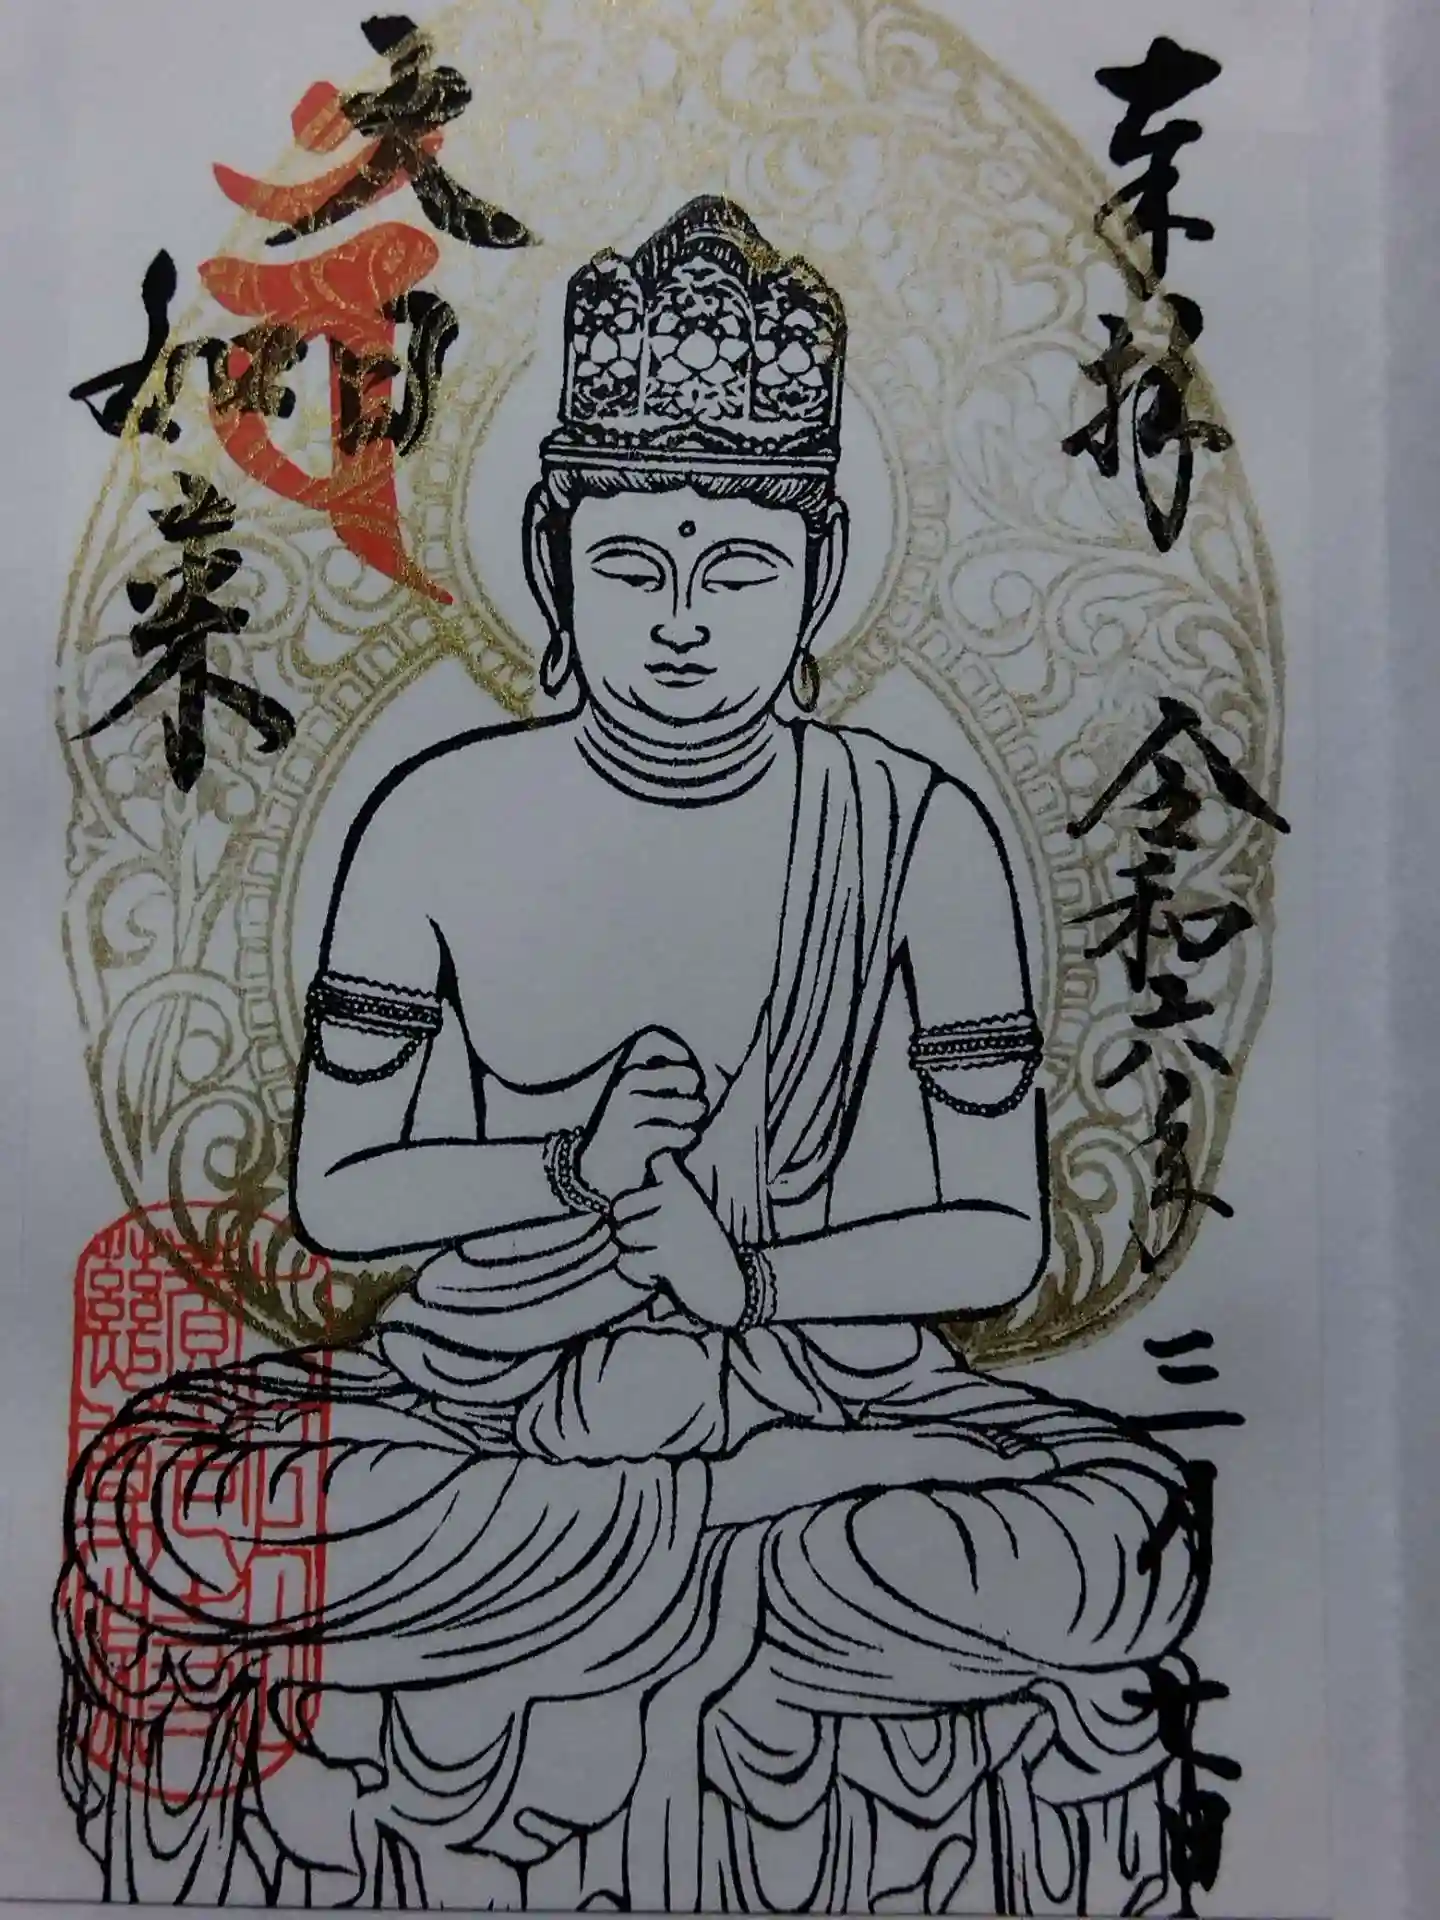 奉拝
令和六年
三月廿日
大日
如来